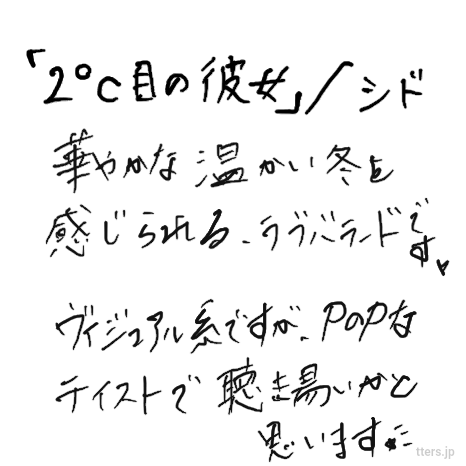 「2°C目の彼女」/シド
華やかな温かい冬を
感じられる、ラブバラードで
す♥
ヴィジュアル系ですが、POPな
テイストで聴き易いかと
思います★ミ
tters.jp